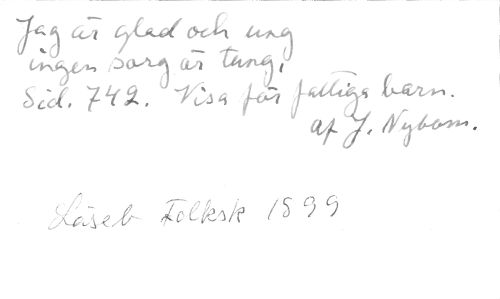 Jag är glad och ung
ingen sorg är tung,
Sid. 742. Visa för fattiga barn.
af J. Nybom.
Läseb Folksk 1899